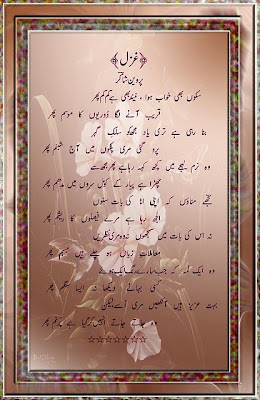 ﴿غزل﴾
پروین شاکر
سکوں بھی خواب ہوا ، نیند بھی ہے کم کم پھر
قریب آنے لگا دُوریوں کا موسم پھر
بنا رہی ہے تری یاد مجھکو سلکِ گہر
پرو گئی مری پلکوں میں آج شبنم پھر
وہ نرم لہجے میں کچھ کہہ رہا ہے پھر مجھ سے
چھڑا ہے پیار کے کومل سروں میں مدھم پھر
تجھے مناؤں کہ اپنی انا کی بات سنوں
الجھ رہا ہے مرے فیصلوں کا ریشم پھر
نہ اس کی بات میں سمجھوں نہ وہ مری نظریں
معاملاتِ زباں ہو چلے ہیں مبہم پھر
کسی بہانے
بہت عزیز ہیں آنکھیں مری اُسے لیکن
وہ جاتے جاتے انہیں کر گیا ہے پُرنم پھر
☆☆☆☆☆☆☆